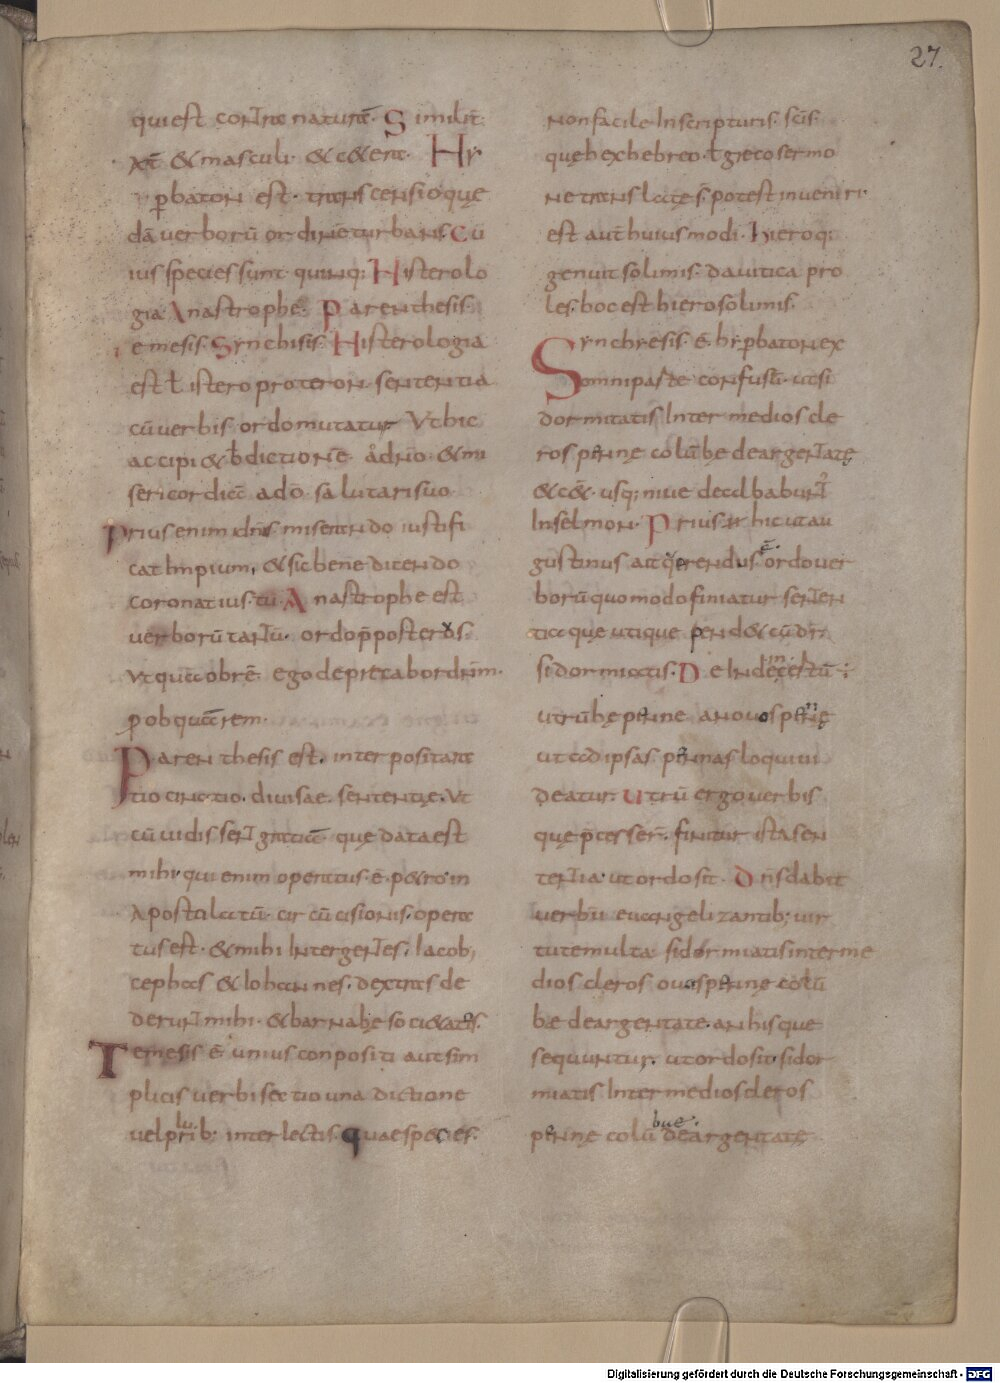 27.
qui est contra naturā. Similit̄
xt̄ & masculi. & c&era. Hy
ꝑbaton est. transcensio quę
dā verborū ordinē turbans. Cu
ius species sunt quinq; Histerolo
gia Anastrophe. Parenthesis
temesis. Synchisis. Histerologia
est ł istero proteron. sententia
cū verbis ordo mutatur Ut hic
accipi& b̄dictionē a dn̄o. & mi
sericordiā a dō salutari suo
Prius enim dn̄s miserando iustifi
cat Impium, & sic bene dicendo
coronat ius tū. Anastrophe est
verborū tantū. ordo p̄posterus.
Ut quā obrē. ego deprecabor dnm̄.
ꝑ ob quā rem.
Parenthesis est. interposita ra
tiocinatio. divisae sententię. Ut
cū vidissent gratiā que data est
mihi. qui enim operatus ē p&ro in
Apostolatū circūcisionis. opera
tus est. & mihi Inter gentes. Iacob;
cephas & Iohannes. dextras de
derunt mihi. & barnabę soci&atis.
Temesis ē unius conpositi aut sim
plicis verbi sectio una dictione
vel plurib; interiectis. quae species.
non facile In scripturis. scis.
quę hęx hebreo. ł greco sermo
ne translatęs. potest inveniri.
est aut̄ huiusmodi. hieroq;
genuit solimis. davitica pro
les. hoc est hierosolimis.
Synchresis. ē. hyꝑbaton ex
omni parte confusū. ut si
dormitatis Inter medios cle
ros pennę colūbę deargentatę
& c&. usq; nive dealbabunt
In selmon. Prius hic ut au
gustinus ait querendus ē ordo ver
borū quomodo finiatur senten
tia que utique pend& cū dr̄
si dormiatis. De In
utrū hę penne an ovos pennę
ut ad ipsas pennas loqui vi
deatur. Utrū ergo verbis
que p̄cesser̄. finitur ista sen
tentia. ut ordo sit. Dn̄s dabit
verbū evangelizantib; vir
tute multa. si dormiatis inter me
dios cleros ovos pennę colū
bæ deargentate. an his que
sequuntur. ut ordo sit. si dor
miatis Inter medios cleros
pennę colūbue. deargentatę
Digitalisierung gefördert durch die Deutsche Forschungsgemeinschaft - DFG